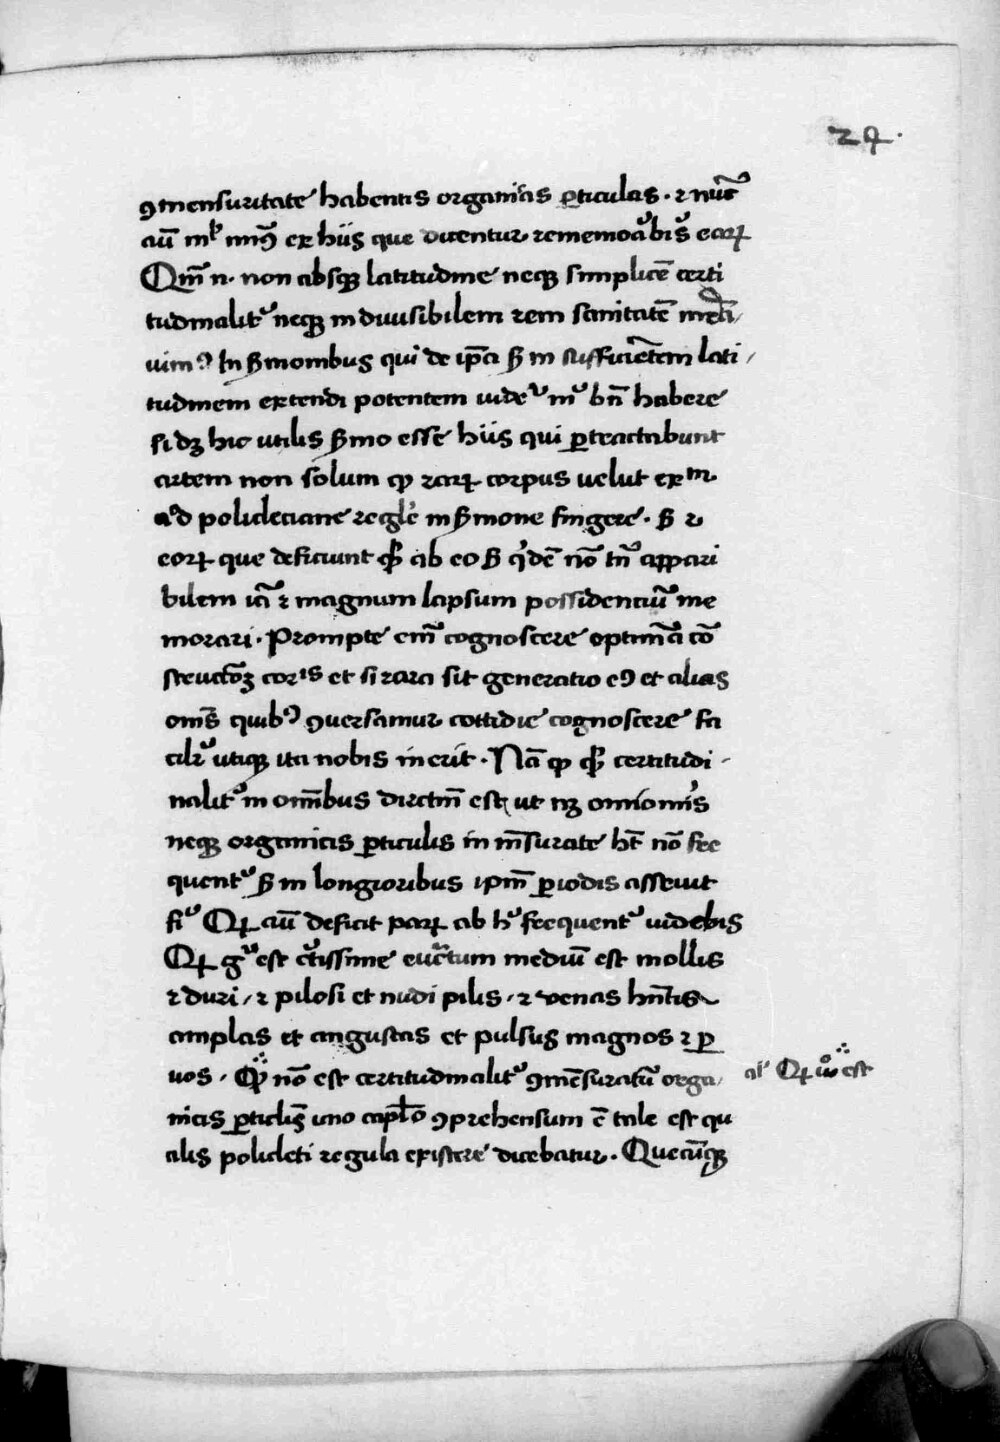 24.
ꝯmensuritate habentis organicas ꝑticulas · ⁊ nūc
aūt mͥl min9 ex hiis que dicentur rememorabim9 eorꝝ
Qm̄ n̄ · non absqꝫ latitudine neqꝫ simplicē certi
tudinalit̾ neqꝫ indiuisibilem rem sanitatē
uim9 In ẜmonibus qui de ip̄a ẜ in sufficiētem lati
tudinem extendi potentem uidet̾ m̾ bn̄ habere
si dꝫ hic utilis ẜmo esse hiis qui ꝑtractabunt
artem non solum ꝙ rarꝝ corpus uelut exᵐ
ad policleciane regle in ẜmone fingere · ẜ ⁊
eorꝝ que deficiunt ab eo ẜ qͥdē nō tm̄ appari
bilem iā ⁊ magnum lapsum possidenciū me
morari · Prompte em̄ cognoscere optimā cō
structōꝫ corꝑis et si rara sit generatio e9 et alias
om̄s quib9 ꝯuersamur cottidie cognoscere fa
cilr̄ utiqꝫ ita nobis inerit · Nā ꝙ certitudi
nalit̾ in om̄ibus dictm̄ est ut nꝫ omiomͥis
neqꝫ organicis ꝑticulis in m̄surate hēt nō fre
quent̾ ẜ in longioribus ip̄m ꝑiodis asseuit
fi̾ Qꝝ aūt deficit parꝝ ab h̾ frequent̾ uidebis
Qꝝ g̾ est c̾tissime eucratum mediū est mollis
⁊ duri / ⁊ pilosi et nudi pilis / ⁊ venas hn̄tis
amplas et angustas et pulsus magnos ⁊ ꝑ
uos · Qꝙ nō est certitudinalit̾ ꝯmēsuratū orga
nicis ꝑticl̄is uno capl̄o ꝯprehensum ē tale est qu
alis policleti regula existere dicebatur · Quecūqꝫ
al' Qꝝ uͦ est